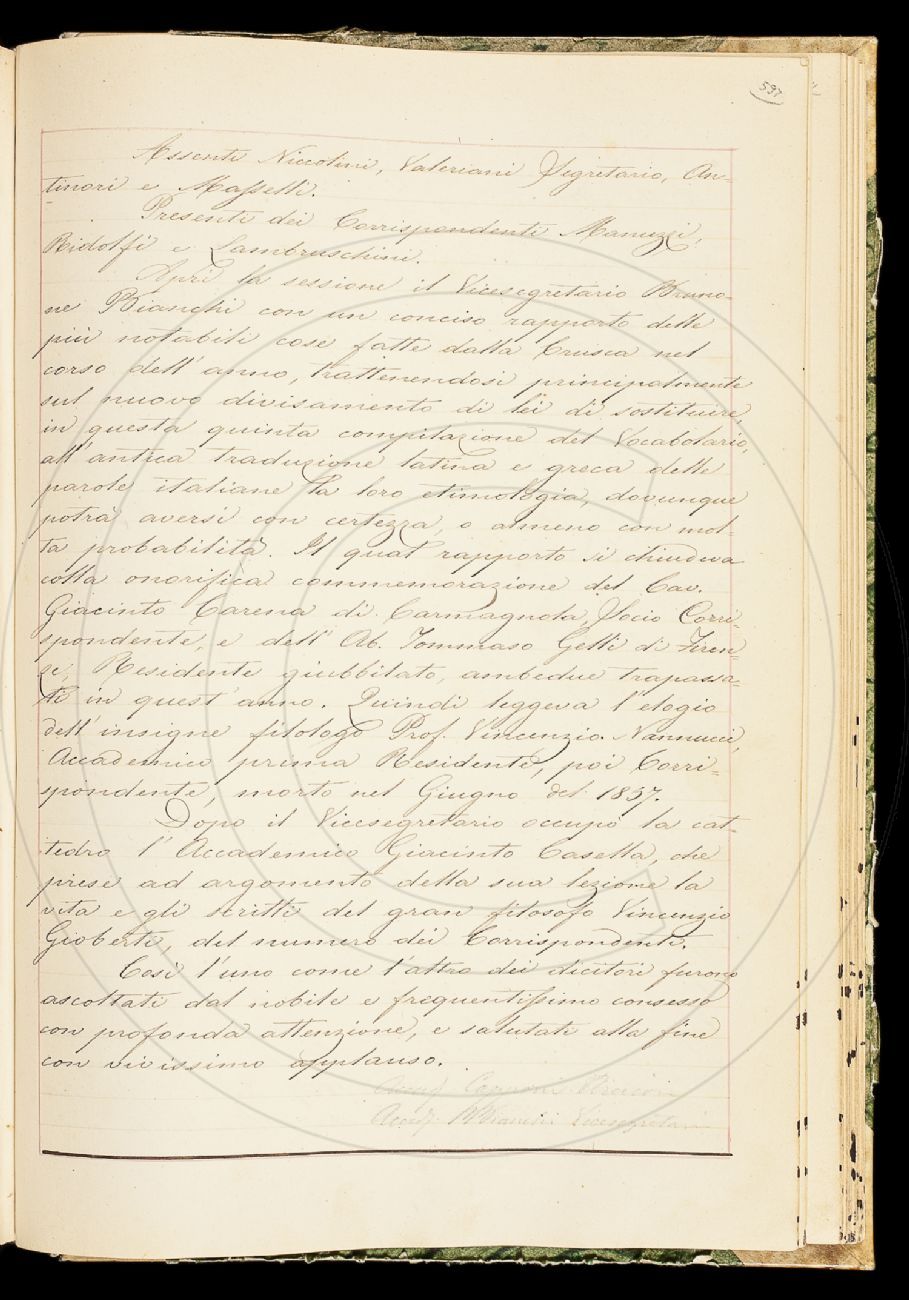 597
Assenti Niccolini, Valeriani Segretario, An-
tinori e Masselli.
Presenti dei Corrispondenti Manuzzi,
Ridolfi e Lambruschini.
Aprì la sessione il Vicesegretario Bruno-
ne Bianchi con un conciso rapporto delle
più notabili cose fatte dalla Crusca nel
corso dell'anno, trattenendosi principalmente
sul nuovo divisamento di lei di sostituire,
in questa quinta compilazione del Vocabolario,
all'antica traduzione latina e greca delle
parole italiane la loro etimologia, dovunque
potrà aversi con certezza, o almeno con mol-
ta probabilità. Il qual rapporto si chiudeva
colla onorifica commemorazione del Cav.
Giacinto Carena di Carmagnola, Socio Corri-
spondente, e dell'Ab. Tommaso Gelli di Firen-
ze, Residente giubbilato, ambedue trapassa-
ti in quest'anno. Quindi leggeva l'elogio
dell'insigne filologo Prof. Vincenzio Nannucci,
Accademico prima Residente, poi Corri-
spondente, morto nel Giugno del 1857.
Dopo il Vicesegretario occupò la cat-
tedra l'Accademico Giacinto Casella, che
prese ad argomento della sua lezione la
vita e gli scritti del gran filosofo Vincenzio
Gioberti, del numero dei Corrispondenti.
Così l'uno come l'altro dei dicitori furono
ascoltati dal nobile e frequentissimo consesso
con profonda attenzione, e salutati alla fine
con vivissimo applauso.
Capponi
Bianchi Vicesegretario